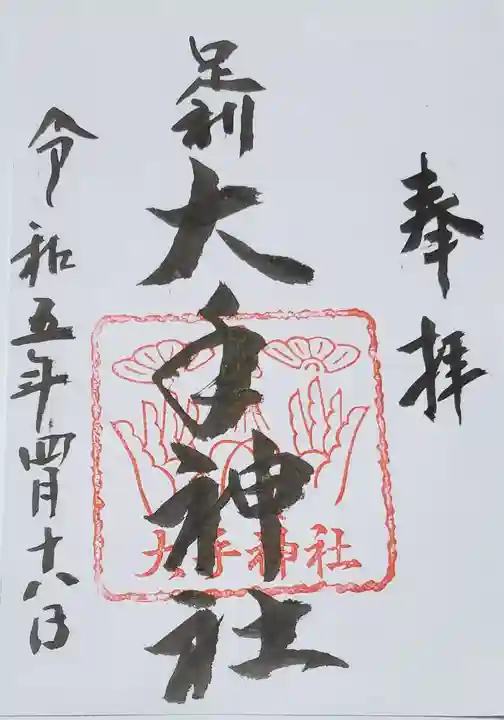 奉拝
足利
大手神社
大手神社
令和五年四月十八日